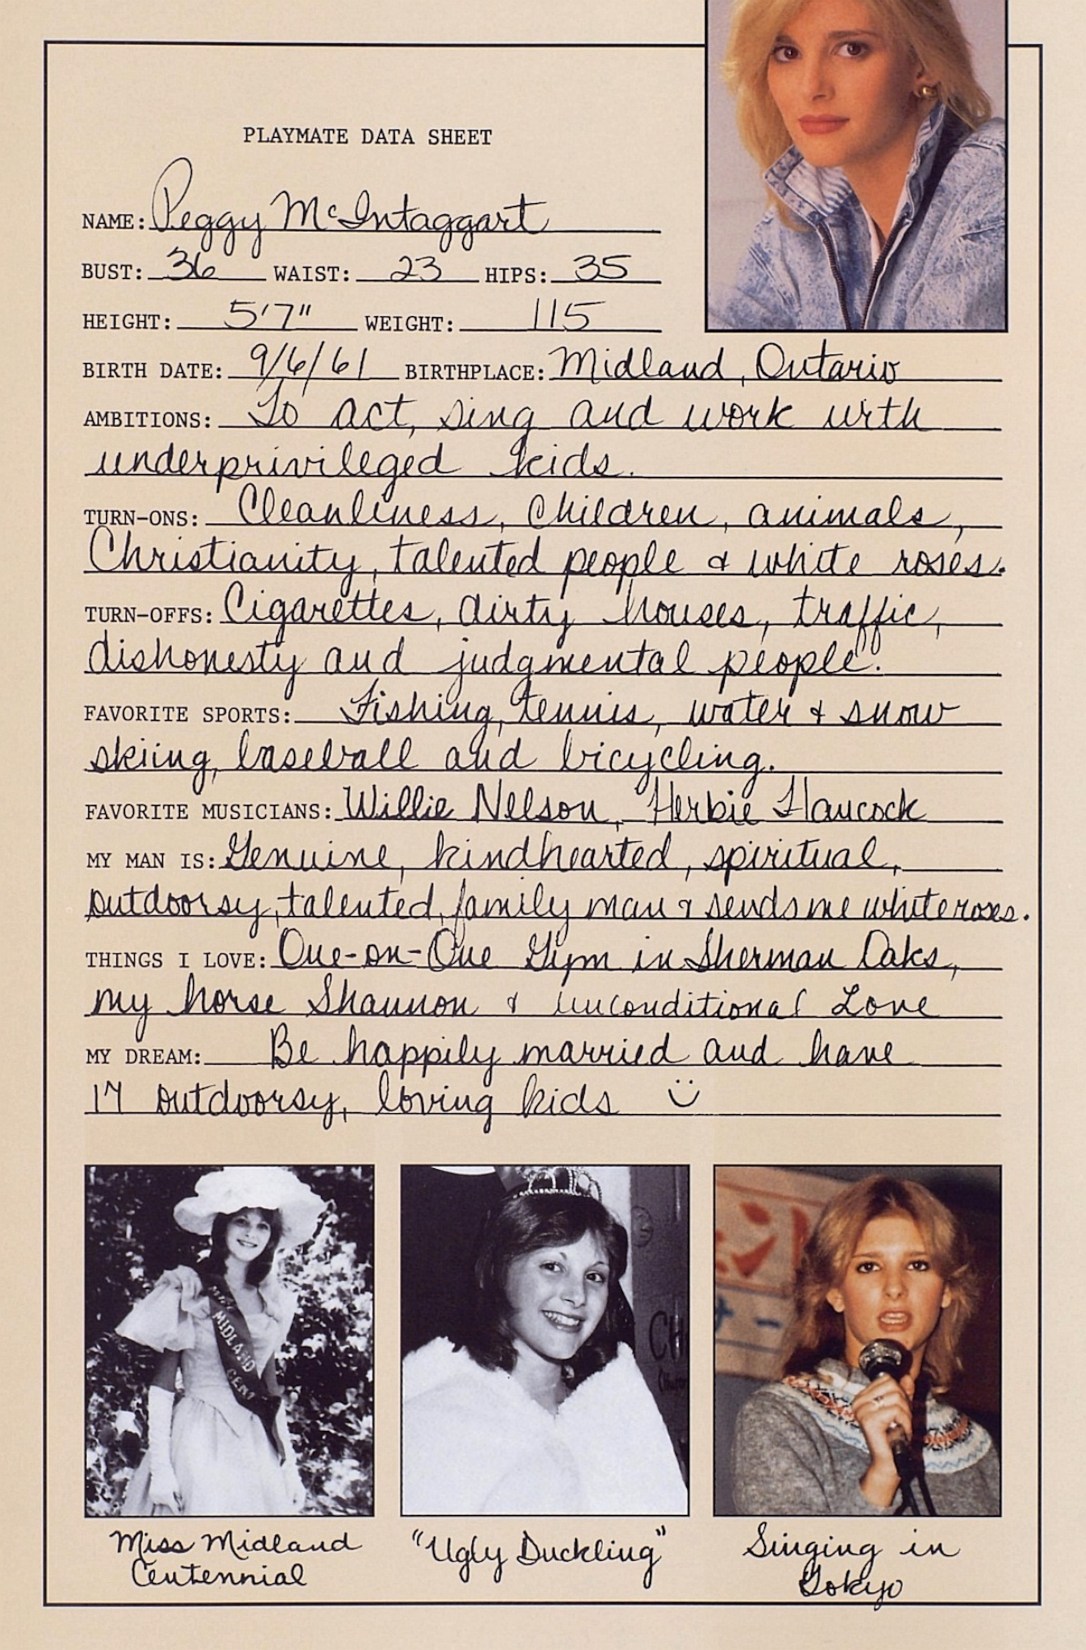 PLAYMATE DATA SHEET
NAME: Peggy McIntaggart
BUST: 36 WAIST: 23 HIPS: 35
HEIGHT: 5'7" WEIGHT: 115
BIRTH DATE: 9/6/61 BIRTHPLACE: Midland, Ontario
AMBITIONS: To act, sing and work with
underprivileged kids.
TURN-ONS: Cleanliness, Children, animals,
Christianity, talented people & white roses.
TURN-OFFS: Cigarettes, dirty houses, traffic,
dishonesty and judgmental people.
FAVORITE SPORTS: Fishing, tennis, water & snow
skiing, baseball and bicycling.
FAVORITE MUSICIANS: Willie Nelson, Herbie Hancock
MY MAN IS: Genuine, kindhearted, spiritual,
outdoorsy, talented, family man & sends me white roses.
THINGS I LOVE: One-on-One Gym in Sherman Oaks,
my horse Shannon & Unconditional Love
MY DREAM: Be happily married and have
17 outdoorsy, loving kids
MIDLAND
CENT
CH
Miss Midland
Centennial
"Ugly Duckling"
Singing in
Tokyo